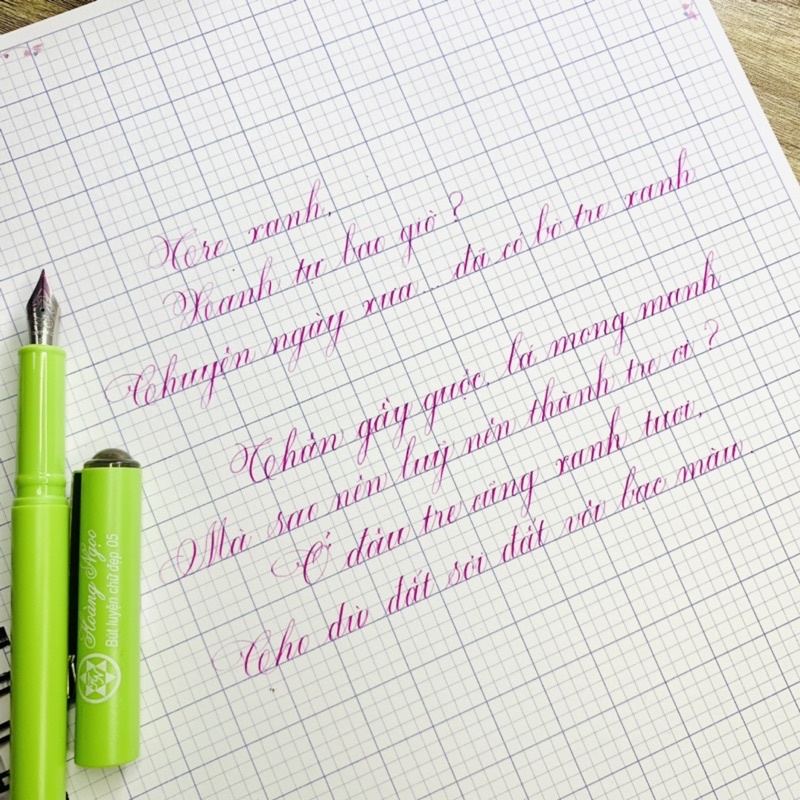 Tre xanh,
Xanh tự bao giờ ?
Chuyện ngày xưa... đã có bờ tre xanh
Thân gầy guộc, lá mong manh
Mà sao nên luỹ nên thành tre ơi ?
Ở đâu tre cũng xanh tươi,
Cho dù đất sỏi đất vôi bạc màu.
Hoàng Ngọc
Bút luyện chữ đẹp 05